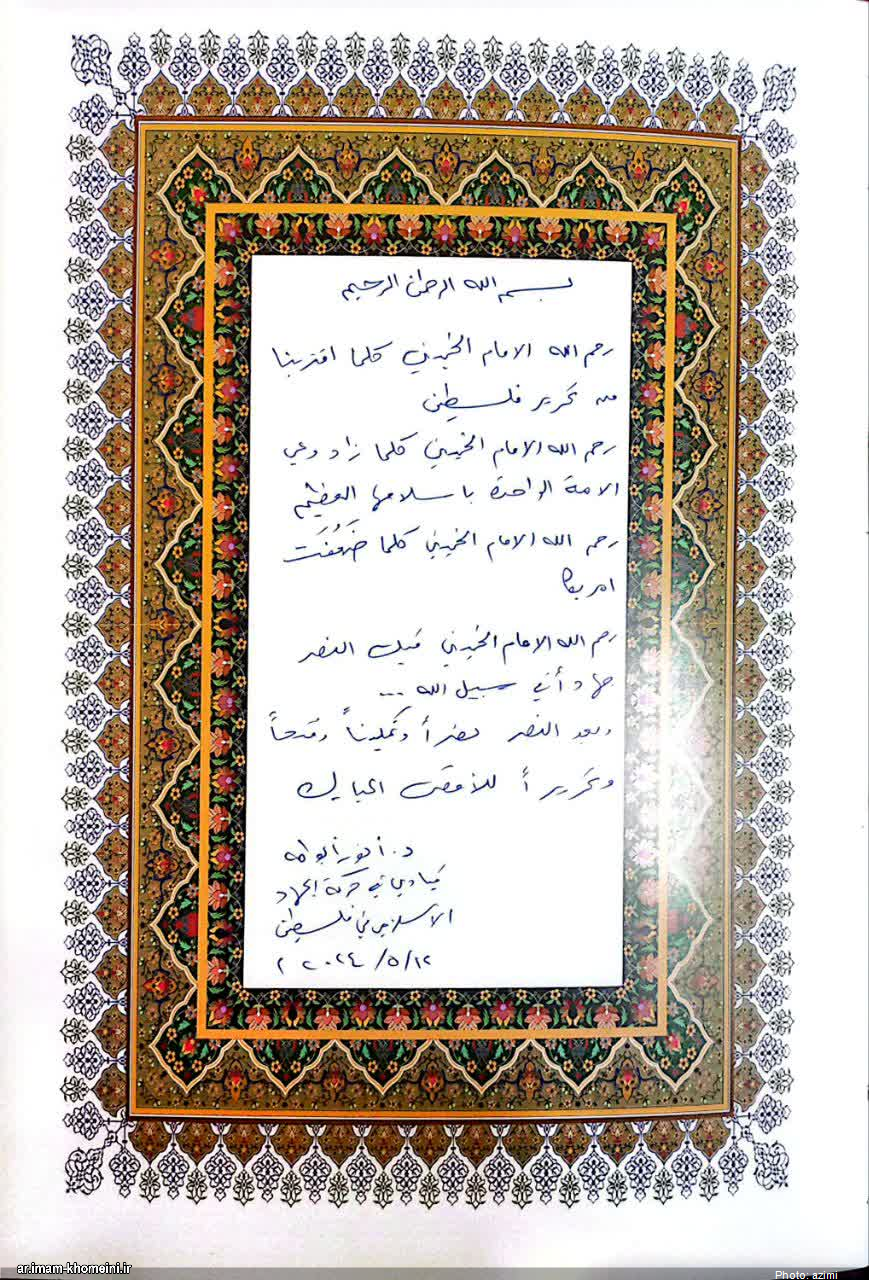 بسم الله الرحمن الرحيم
رحم الله الامام الخميني كلما اقتربنا
من تحرير فلسطين
رحم الله الامام الخميني كلما زاد وعي
الامة الواحدة باسلامها العظيم
رحم الله الامام الخميني كلما ضَعُفَت
امريكا
رحم الله الامام الخميني قبل النصر
جهاداً في سبيل الله ...
وبعد النصر نصراً وتمكيناً وفتحاً
وتحريراً للأقصى المبارك
د. أنور أبو طه
قيادي في حركة الجهاد
الاسلامي في فلسطين
١٢/٥/٢٠٢٤ م
ar.imam-khomeini.ir
Photo: azimi